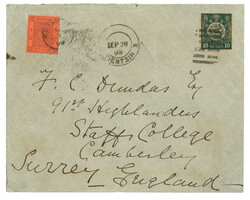 SEP 28
98
TIENTSIN
10 10
F. C. Dundas Esq
91st Highlanders
Staff College
Camberley
Surrey England